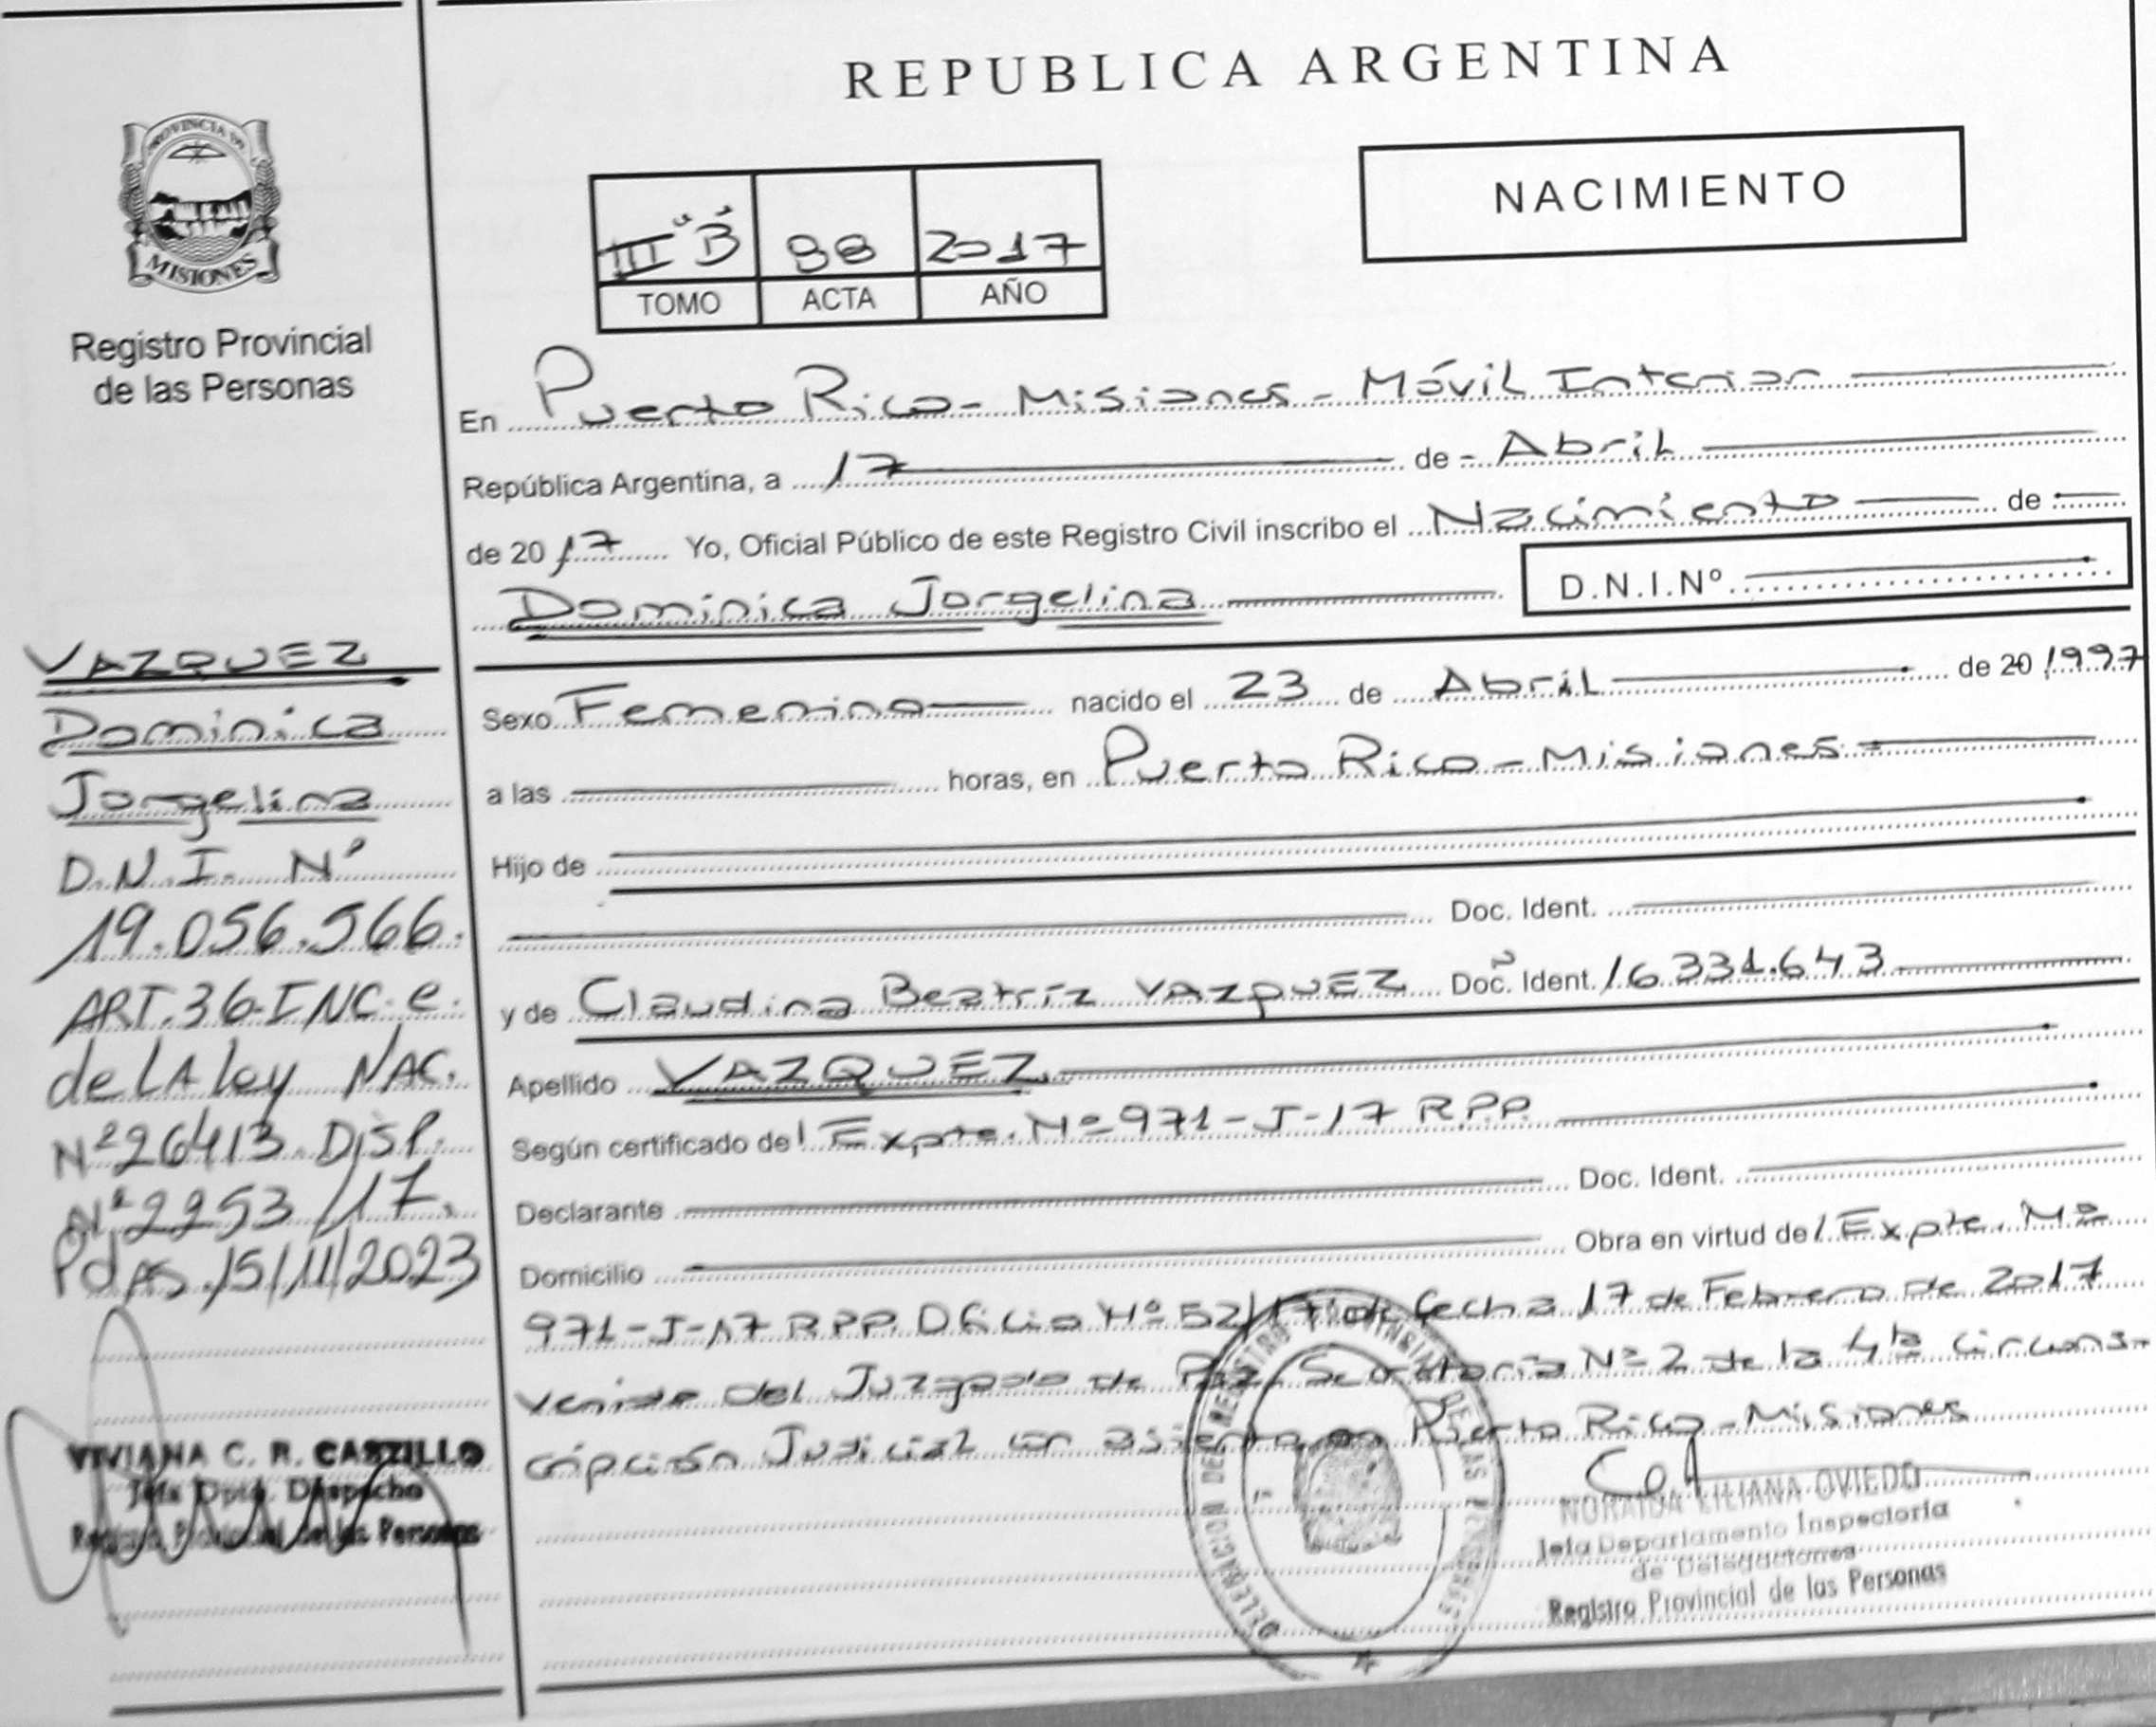 REPUBLICA ARGENTINA
PROVINCIA DE
MISIONES
Registro Provincial
de las Personas
NACIMIENTO
III "B" 98 2017
TOMO ACTA AÑO
En Puerto Rico - Misiones - Móvil Interior
República Argentina, a 17 de - Abril
de 20 17 Yo, Oficial Público de este Registro Civil inscribo el Nacimiento de
Dominica Jorgelina D.N.I.Nº
Sexo Femenino nacido el 23 de Abril de 20 1997
a las horas, en Puerto Rico - Misiones
Hijo de
Doc. Ident.
y de Claudina Beatríz VAZQUEZ Doc. Ident. 16.331.643
Apellido VAZQUEZ
Según certificado de l Expte. Nº 971-J-17 RPP
Declarante Doc. Ident.
Domicilio Obra en virtud de l Expte. Nº
971-J-17 RPP. Oficio Nº 52/17 de fecha 17 de Febrero de 2017
venido del Juzgado de Paz Secretaría Nº 2 de la 4ta circuns-
cripción Judicial con asiento en Puerto Rico - Misiones
VAZQUEZ
Dominica
Jorgelina
D.N.I. Nº
19.056.566.
ART. 36-INC. e.
de LA ley NAC.
Nº 26413. DISP.
Nº 2253/17.
PdAS. 15/11/2023
VIVIANA C. R. CASTILLO
Jefa Dpto. Despacho
Registro Provincial de las Personas
DELEGACION DEL REGISTRO PROVINCIAL DE LAS PERSONAS
NORAIDA LILIANA OVIEDO
Jefa Departamento Inspectoria
de Delegaciones
Registro Provincial de las Personas